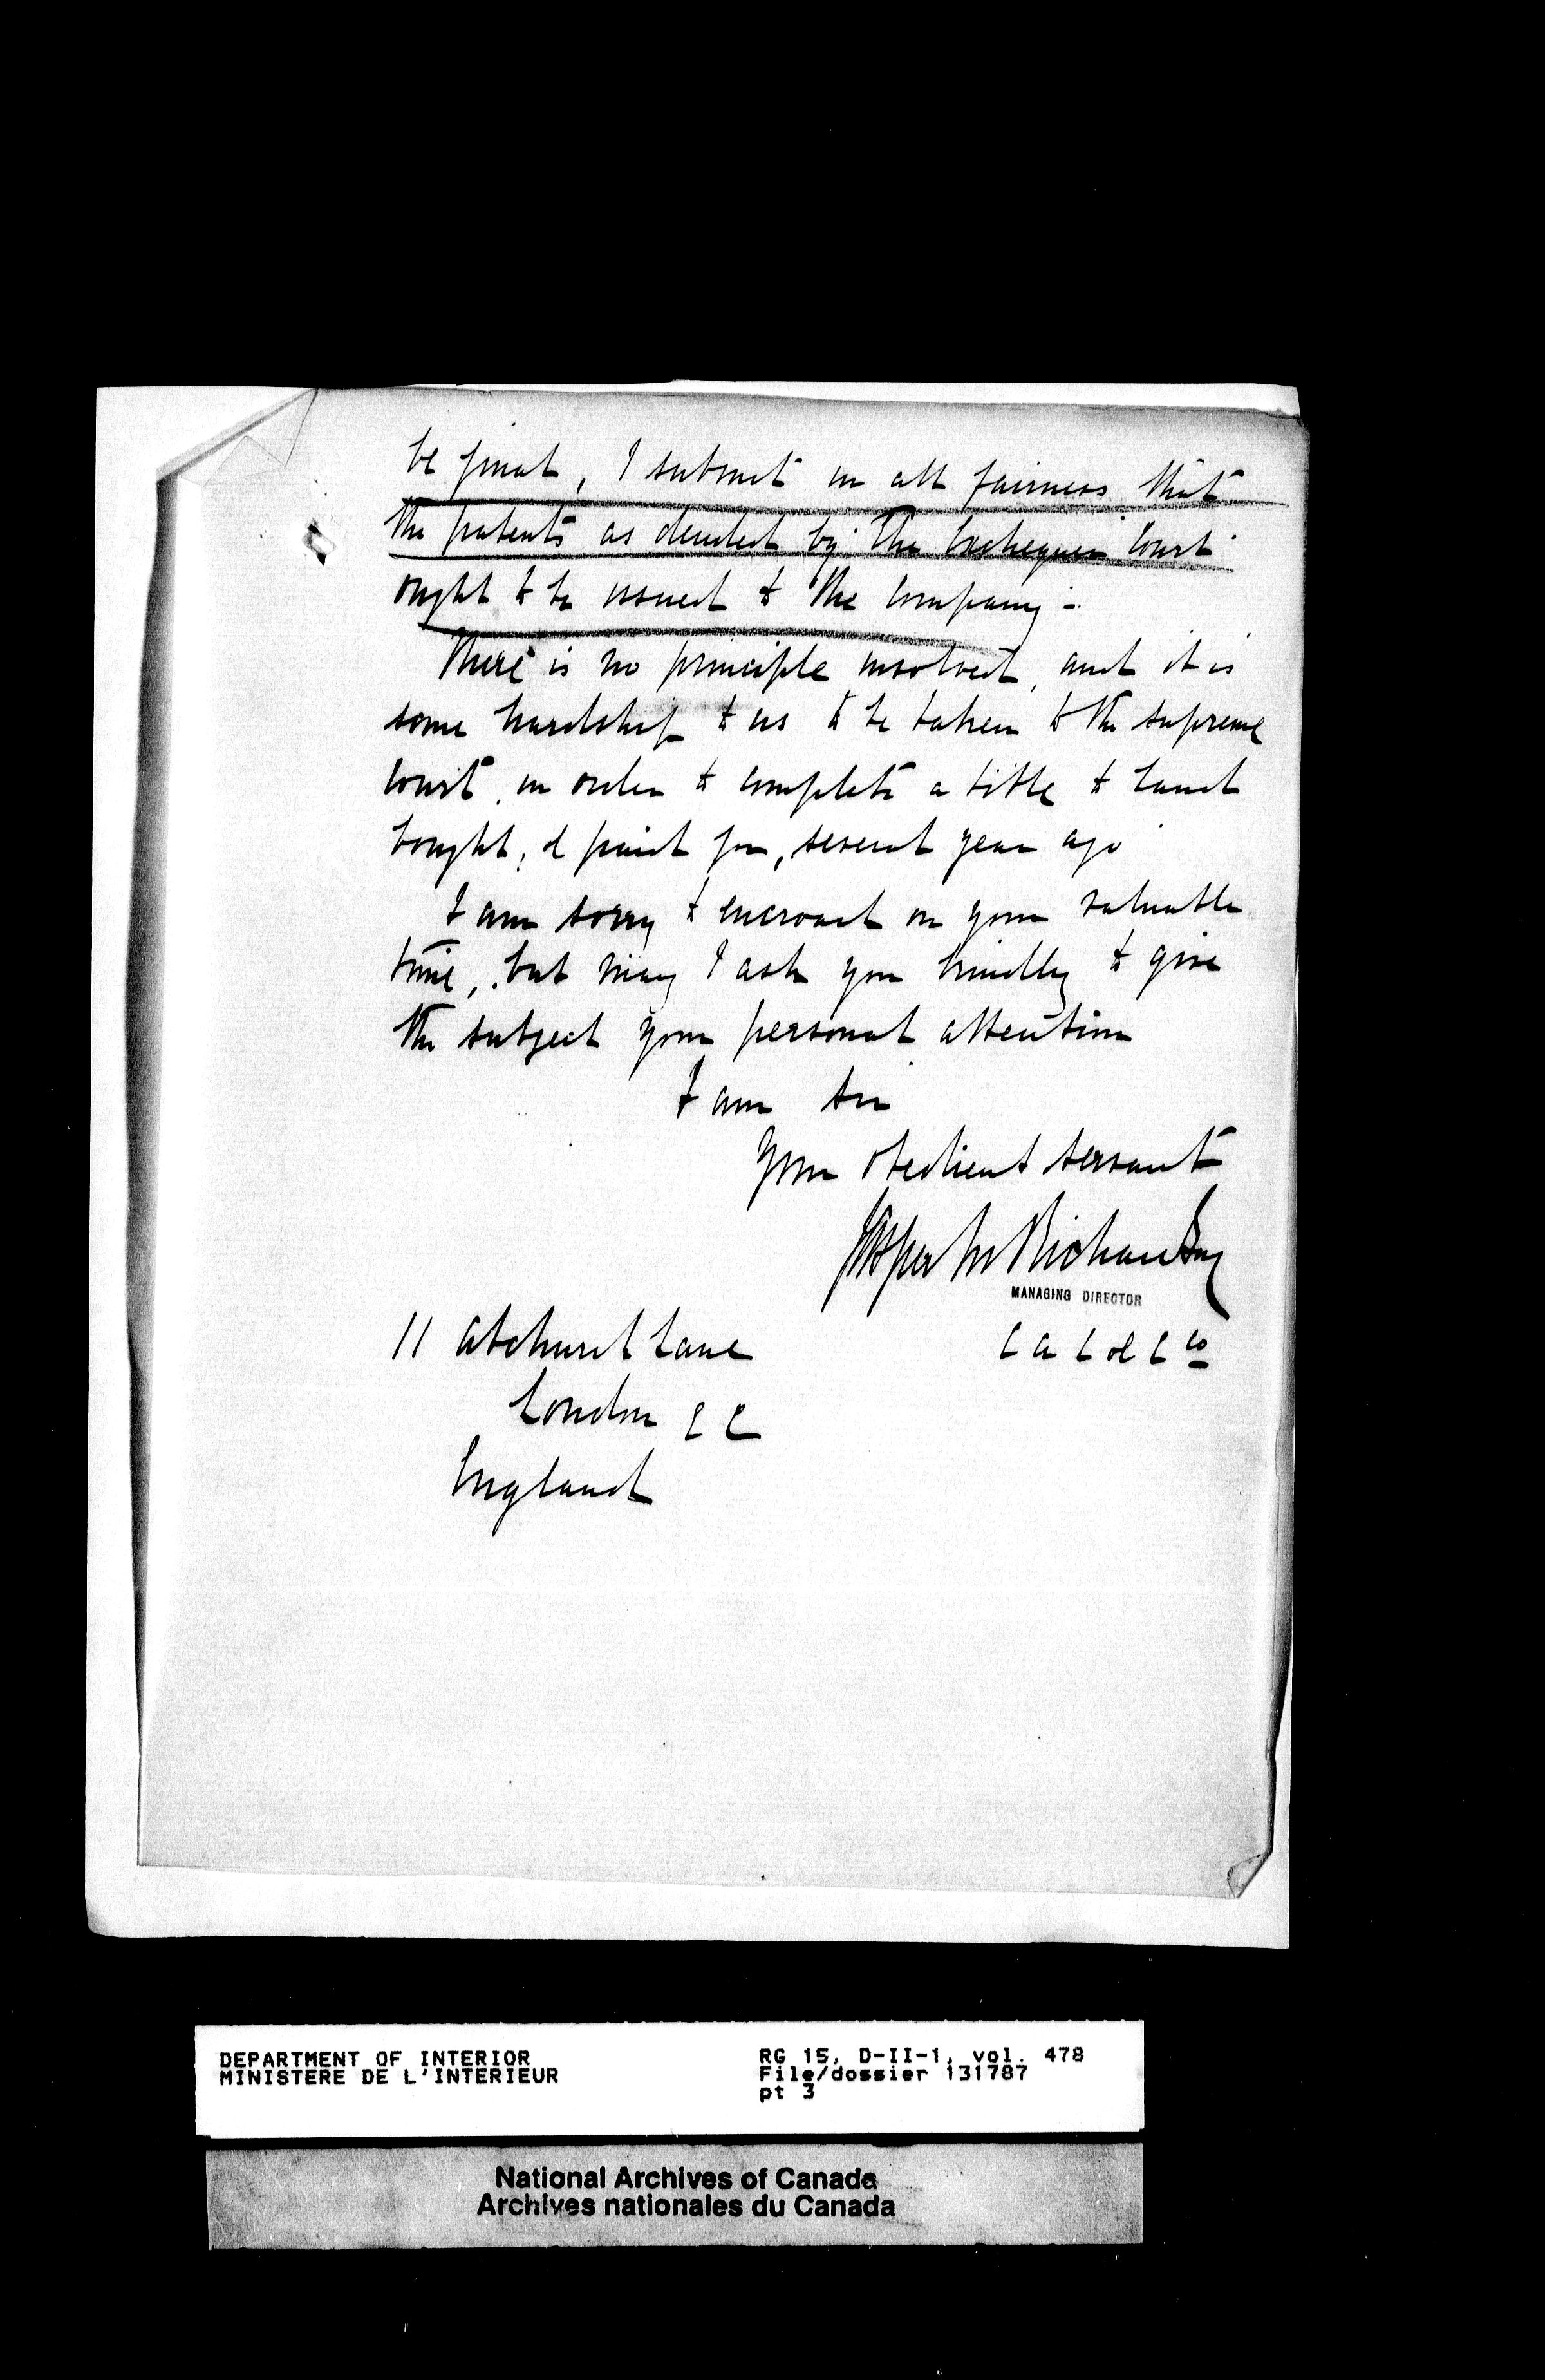 be final, I submit in all fairness that
the patents as decided by the Exchequer Court
ought to be issued to the Company -
There is no principle involved, and it is
some hardship to us to be taken to the supreme
Court in order to complete a title to land
bought, & paid for, several year ago
I am sorry to encroach on your valuable
time, but may I ask you kindly to give
the subject your personal attention
I am Sir
Your obedient servant
Richardson
MANAGING DIRECTOR
11 Abchurch Lane
C A C & C Co
London E C
England
DEPARTMENT OF INTERIOR
MINISTERE DE L'INTERIEUR
RG 15, D-II-1, vol. 478
File/dossier 131787
pt 3
National Archives of Canada
Archives nationales du Canada